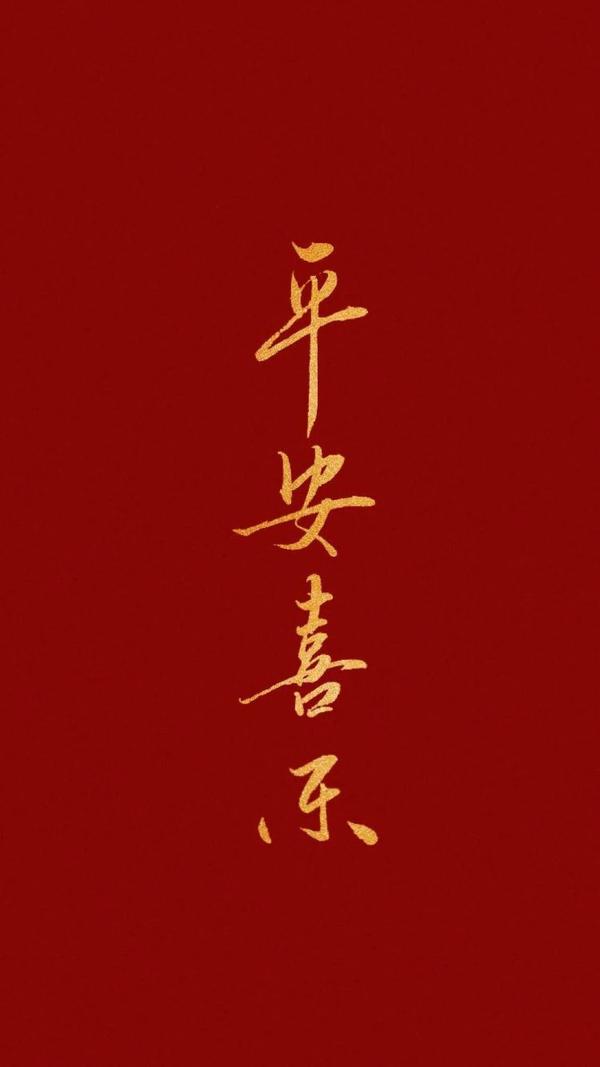 平安喜乐